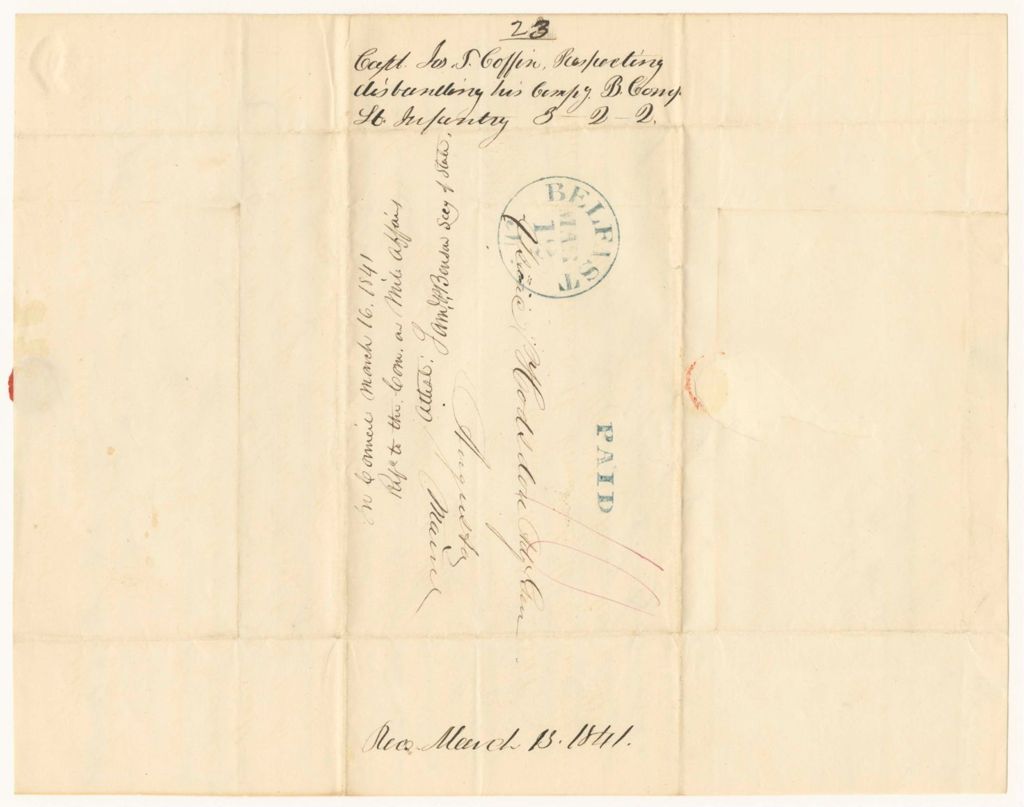 23
Capt. Jos S. Coffin, Respecting
disbanding his Compy B Comp.
Lt Infantry 3 - 2 - 2.
In Council March 16. 1841
to the Com. on Mil. Affairs
Attest: Saml P Benson Secy of State.
BELFAST
MAR
12
PAID
Hodsdon Adj Gen
Augusta
Maine
Rec March 13. 1841.